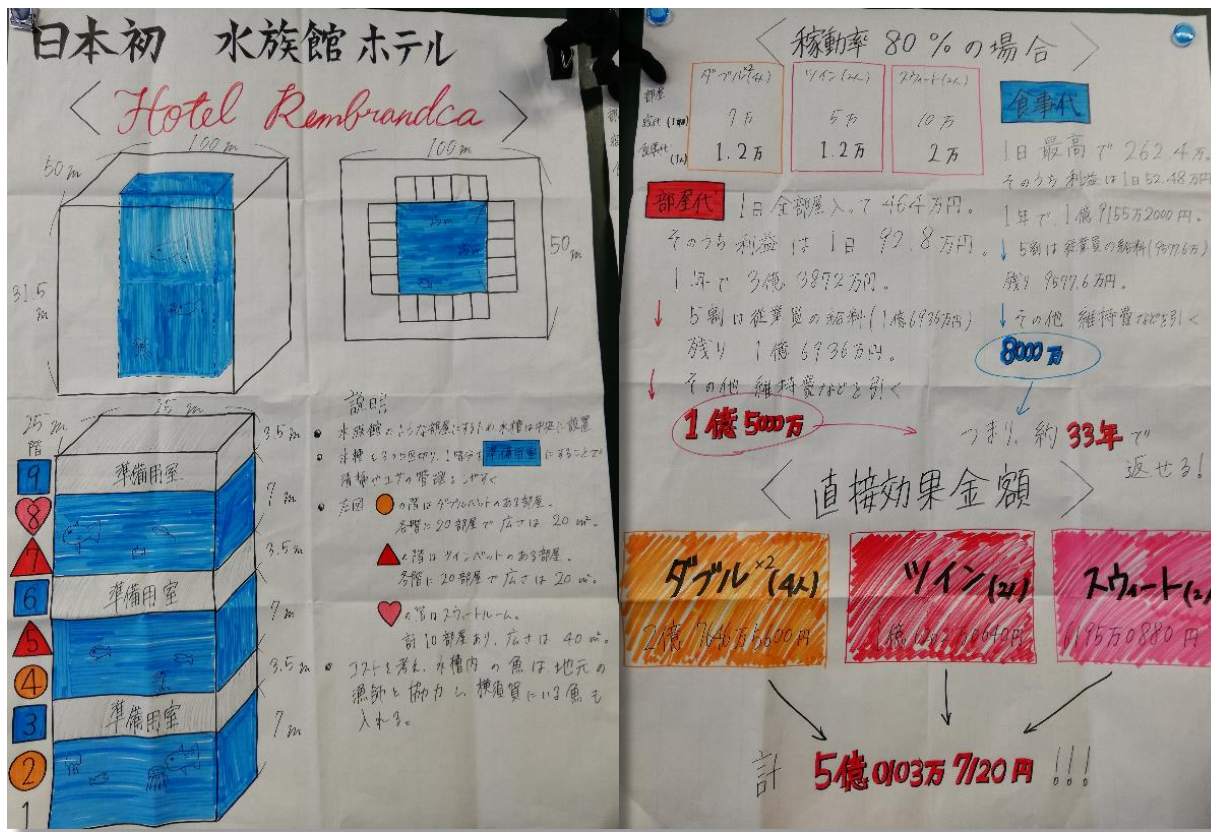 日本初 水族館ホテル
〈 Hotel Rembrandca 〉
100m
50m
31.5m
100m
50m
25m
25m
25m
25m
階
3.5m
準備用室
7m
3.5m
準備用室
7m
3.5m
準備用室
7m
9
8
7
6
5
4
3
2
1
説明
水族館のような部屋にするため水槽は中央に設置
水槽も3つに区切り、1階分を準備用室にすることで
清掃やエサの管理をしやすく
左図
の階はダブルベットのある部屋。
各階に20部屋で広さは20m²。
の階はツインベットのある部屋。
各階に20部屋で広さは20m²。
の階はスウィートルーム。
計10部屋あり、広さは40m²。
コストを考え、水槽内の魚は地元の
漁師と協力し、横須賀にいる魚も
入れる。
〈 稼動率 80%の場合 〉
部屋 ダブル×2(4人) ツイン(2人) スウィート(2人)
7万 5万 10万
食事代(1人) 1.2万 1.2万 2万
部屋代
1日全部屋入って464万円。
そのうち利益は1日92.8万円。
1年で3億3872万円。
↓ 5割は従業員の給料(1億6936万円)
残り 1億6936万円。
↓ その他 維持費などを引く
1億5000万
食事代
1日最高で262.4万。
そのうち利益は1日52.48万円
1年で、1億9155万2000円。
↓ 5割は従業員の給料(9577.6万)
残り 9577.6万円。
↓ その他 維持費などを引く
8000万
つまり、約33年で
返せる!
〈 直接効果金額 〉
ダブル×2(4人)
ツイン(2人)
スウィート(2人)
6195万0880円
計 5億0103万7120円!!!